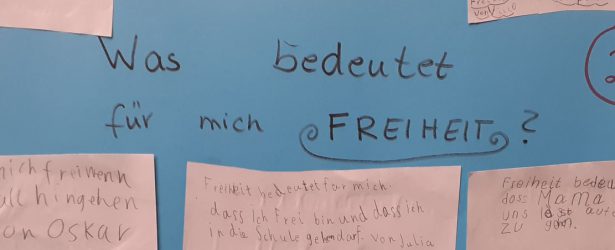 Was bedeutet
für mich FREIHEIT ?
mich frei wenn
hingehen
von Oskar
Freiheit bedeutet für mich:
dass Ich Frei bin und dass ich
in die Schule gehen darf. von Julia
Freiheit bedeu
dass Mama
uns
zu